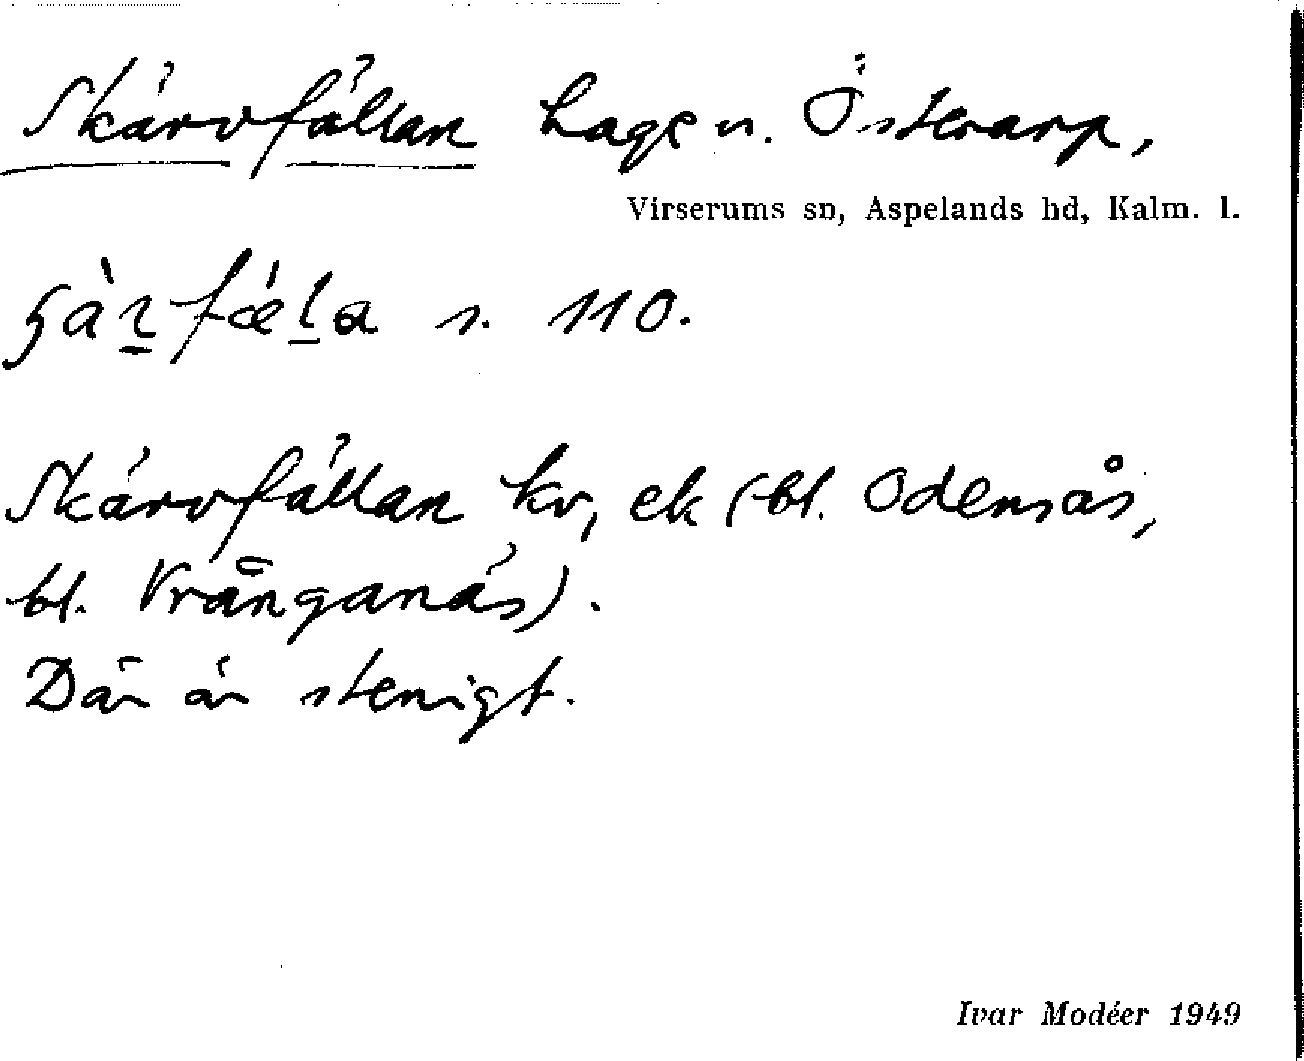 Skärvfällan hage n. Österarp,
Virserums sn, Aspelands hd, Kalm. l.
s. 110.
Skärvfällan kv, ek (bl. Odensås,
bl. Vrånganäs).
Där är stenigt.
Ivar Modéer 1949